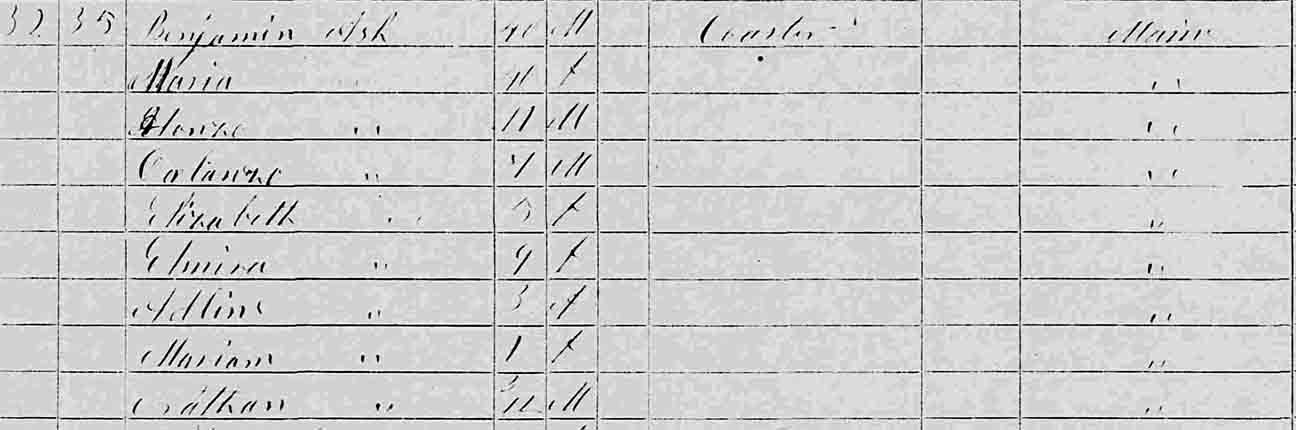 37 35 Benjamin Ash 40 M Coaster Maine
Maria 40 f "
Alonzo " 11 M "
Orlanzo " 7 M "
Elizabeth " 5 f "
Elmira " 9 f "
Adline " 3 f "
Mariam " 1 f "
Nathan " 3/12 M "